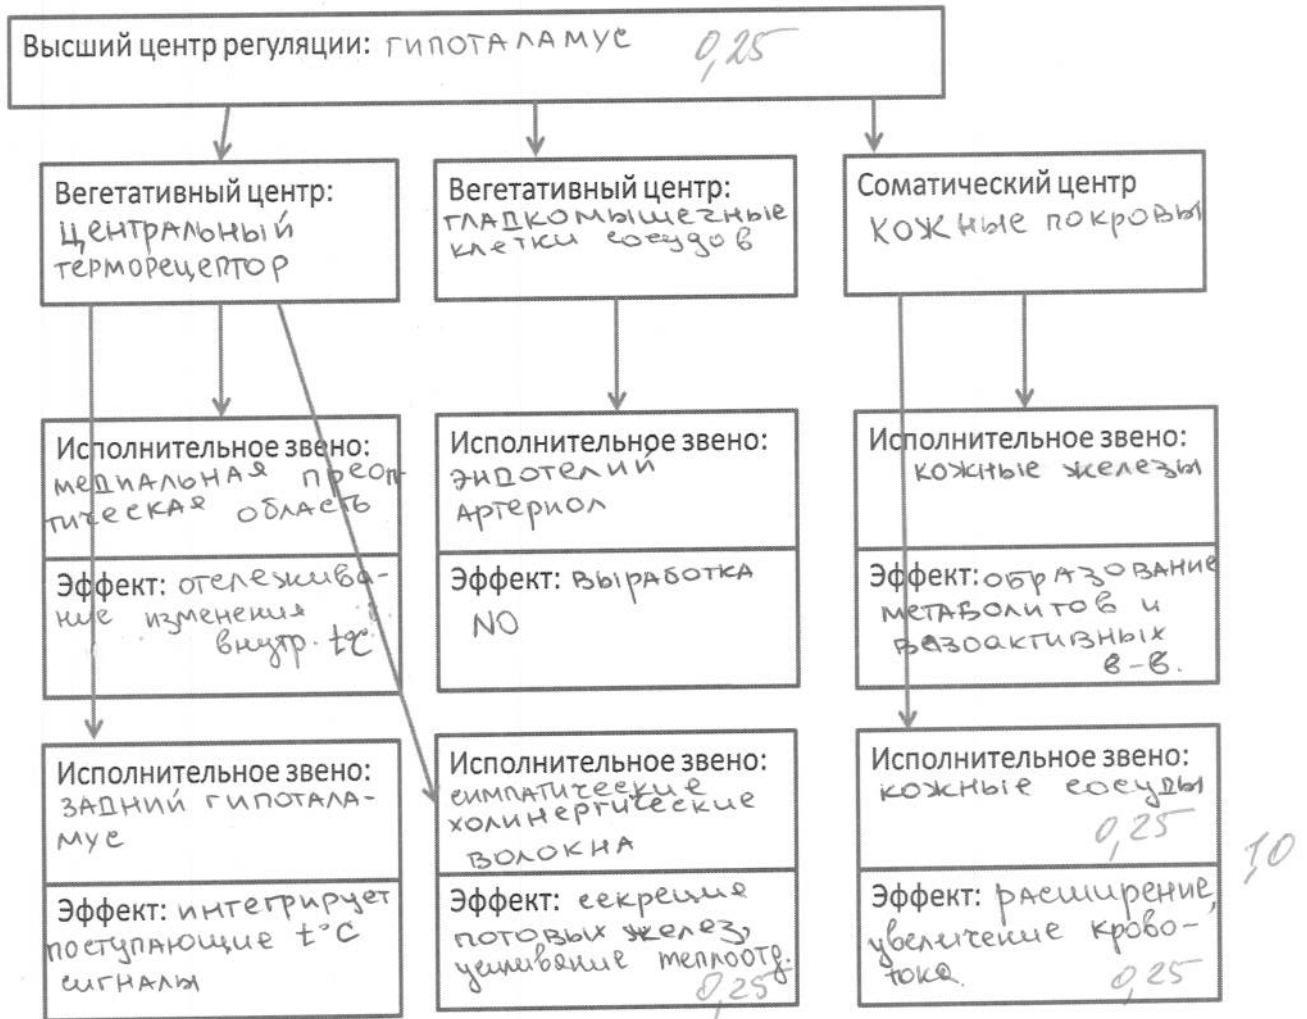 Высший центр регуляции: гипоталамус 0,25
Вегетативный центр:
центральный
терморецептор
Вегетативный центр:
гладкомышечные
клетки сосудов
Соматический центр
кожные покровы
Исполнительное звено:
медиальная преоп-
тическая область
Эффект: отслежива-
ние изменения
внутр. t°C
Исполнительное звено:
эндотелий
артериол
Эффект: выработка
NO
Исполнительное звено:
кожные железы
Эффект: образование
метаболитов и
вазоактивных
в-в.
Исполнительное звено:
задний гипотала-
мус
Эффект: интегрирует
поступающие t°C
сигналы
Исполнительное звено:
симпатические
холинергические
волокна
Эффект: секреция
потовых желез,
усиливание теплоотд.
0,25
Исполнительное звено:
кожные сосуды
0,25
Эффект: расширение,
увеличение крово-
тока.
0,25
1,0